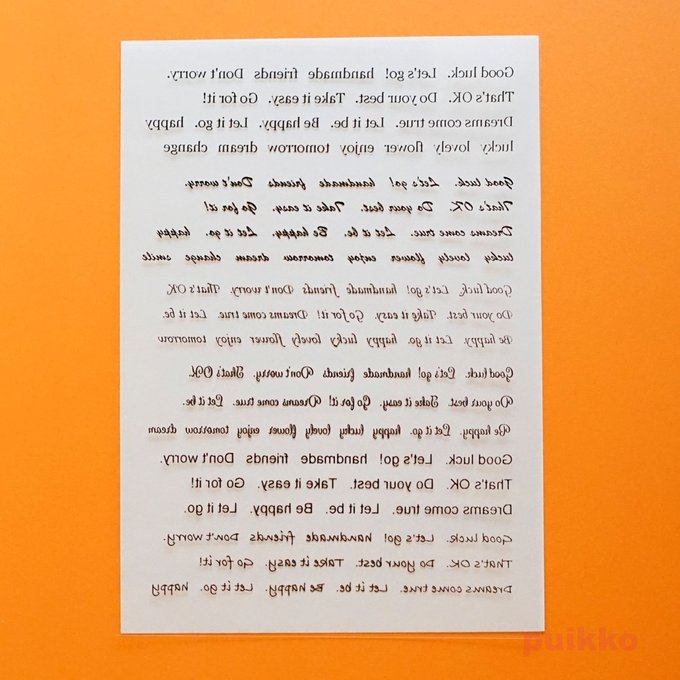 Good luck. Let's go! handmade friends Don't worry.
That's OK. Do your best. Take it easy. Go for it!
Dreams come true. Let it be. Be happy. Let it go. happy
lucky lovely flower enjoy tomorrow dream change
Good luck. Let's go! handmade friends Don't worry.
That's OK. Do your best. Take it easy. Go for it!
Dreams come true. Let it be. Be happy. Let it go. happy
lucky lovely flower enjoy tomorrow dream change smile
Good luck. Let's go! handmade friends Don't worry. That's OK.
Do your best. Take it easy. Go for it! Dreams come true. Let it be.
Be happy. Let it go. happy lucky lovely flower enjoy tomorrow
Good luck. Let's go! handmade friends Don't worry. That's OK.
Do your best. Take it easy. Go for it! Dreams come true. Let it be.
Be happy. Let it go. happy lucky lovely flower enjoy tomorrow dream
Good luck. Let's go! handmade friends Don't worry.
That's OK. Do your best. Take it easy. Go for it!
Dreams come true. Let it be. Be happy. Let it go.
Good luck. Let's go! handmade friends Don't worry.
That's OK. Do your best. Take it easy. Go for it!
Dreams come true. Let it be. Be happy. Let it go. happy
puikko